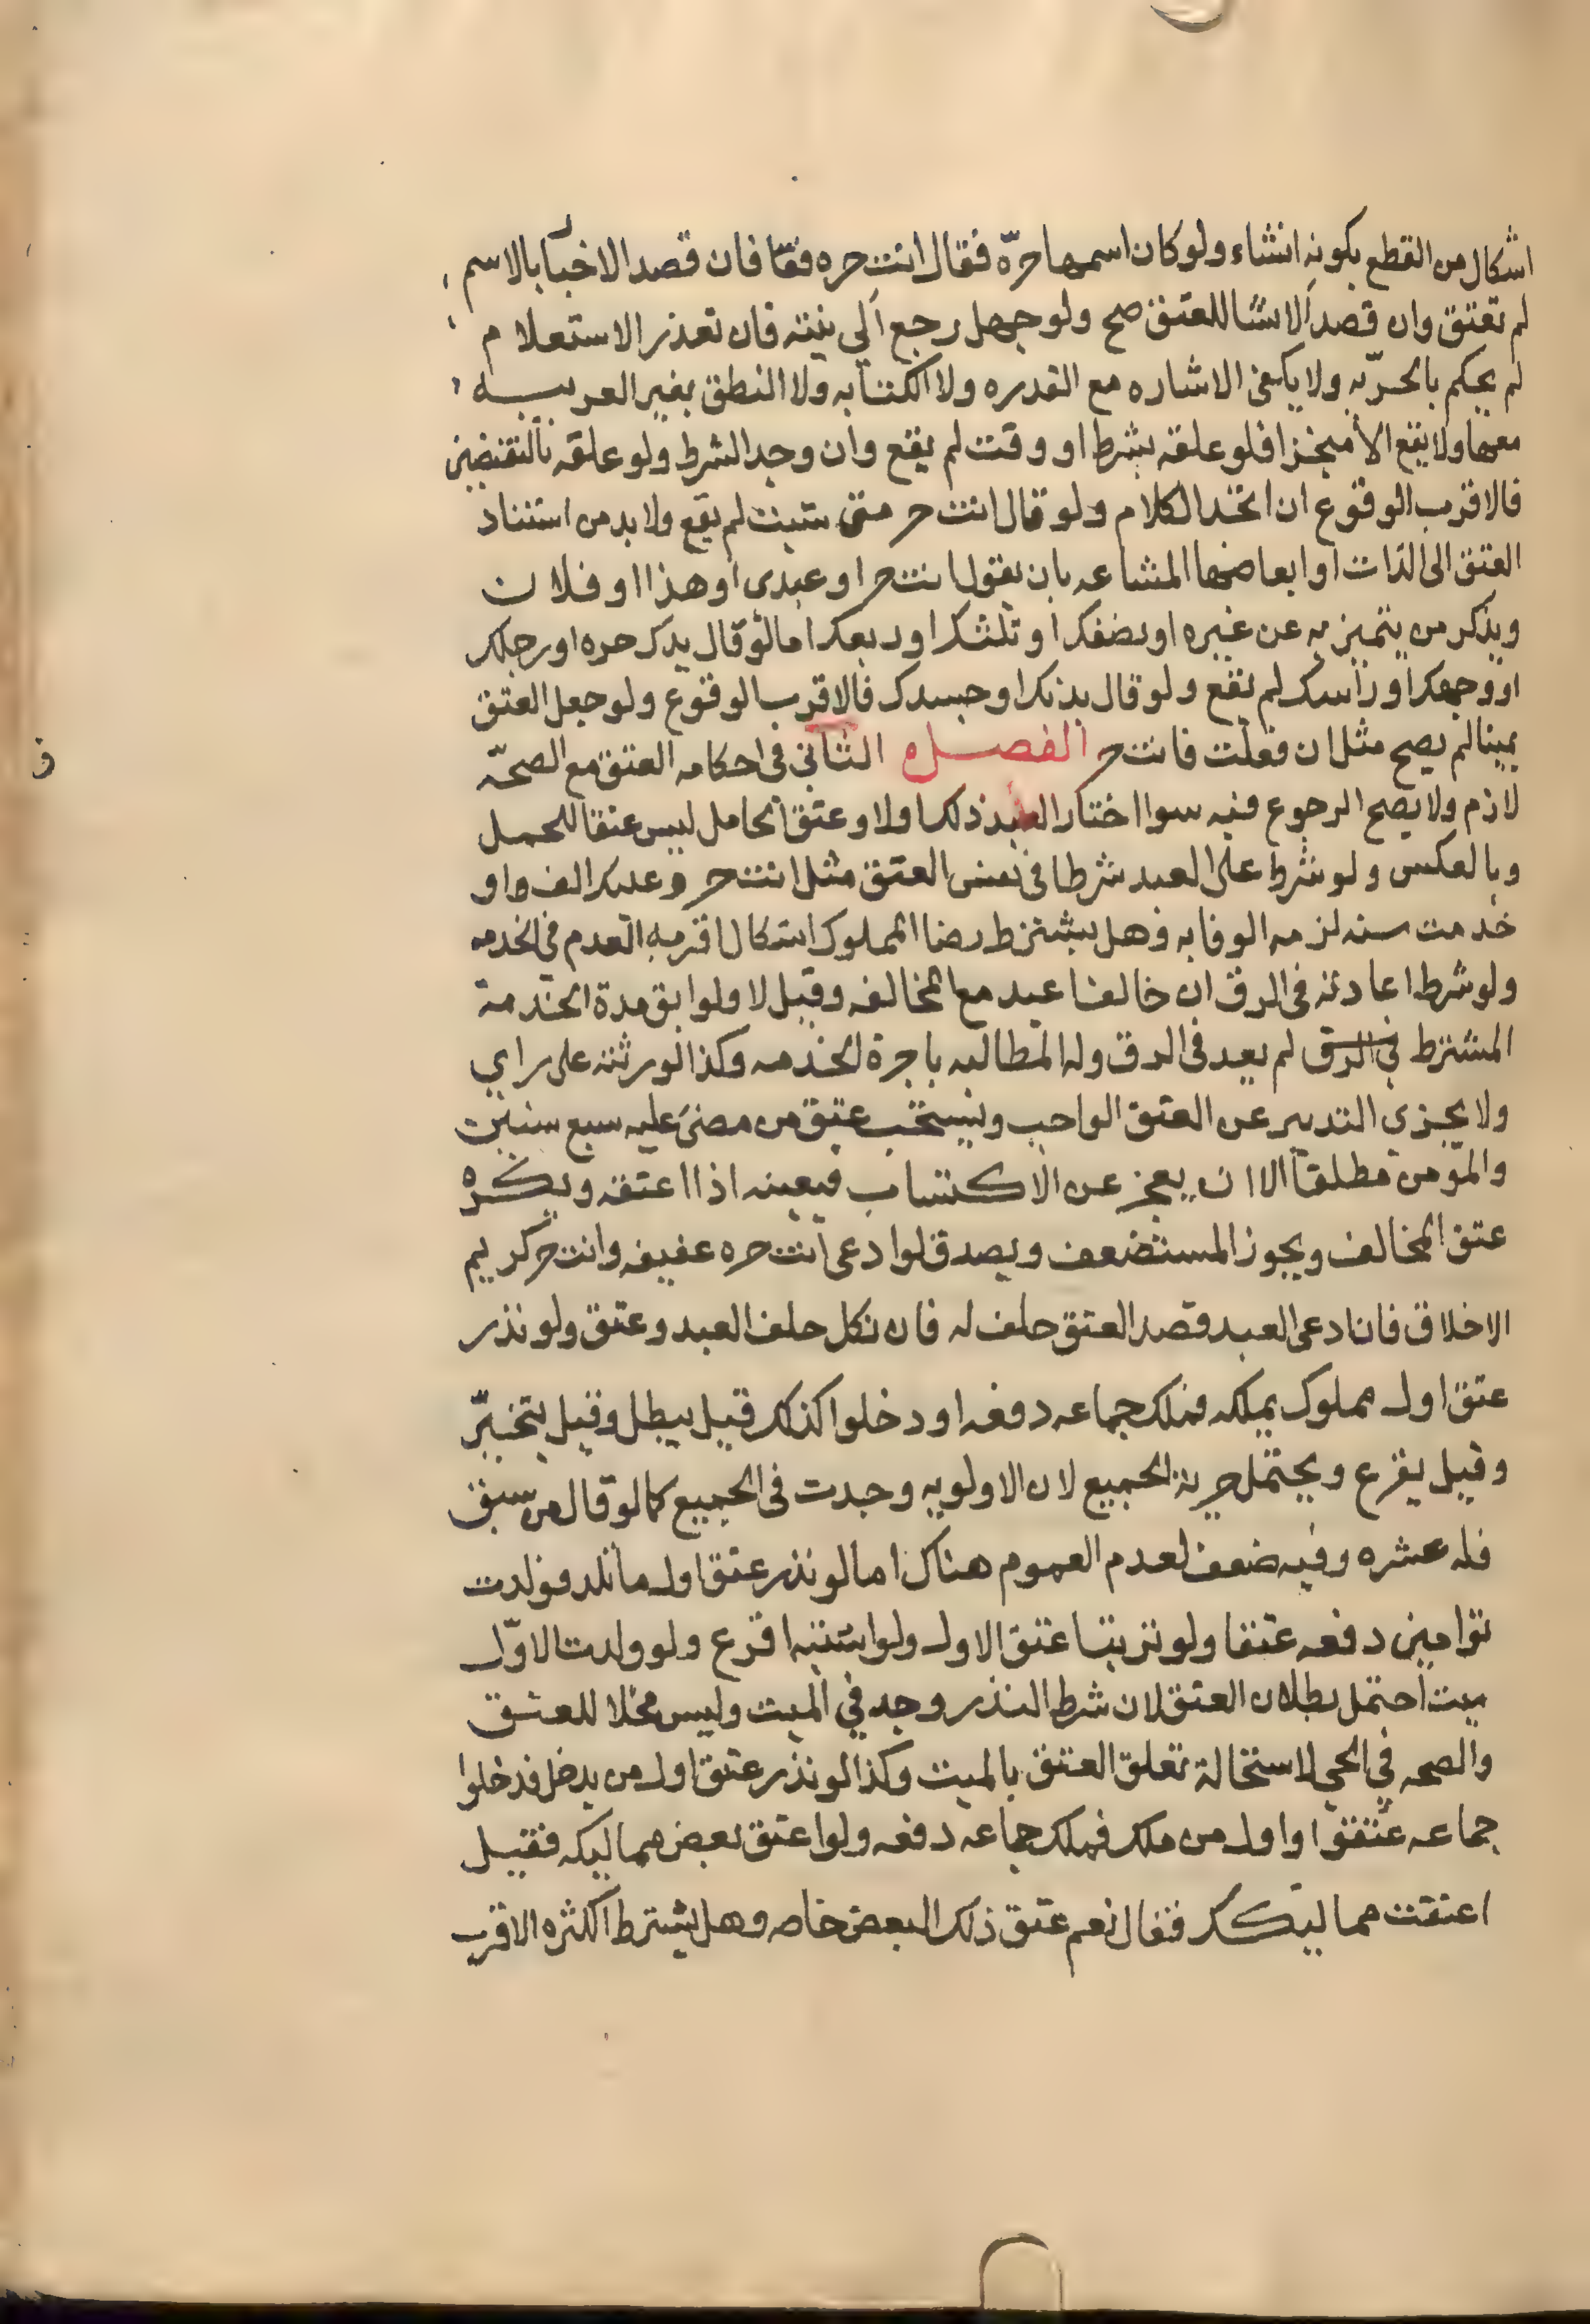 اشكال من القطع بكونه انشاء ولو كان اسمها حرّه فقال انت حره فقا فان قصد الاخبا بالاسم
لم تعتق وان قصد الانشا للعتق صح ولو جهل رجع الى نيته فان تعذر الاستعلام
لم يحكم بالحرّيه ولا يكفى الاشاره مع القدره ولا الكتابه ولا النطق بغير العربيه
معها ولا يقع الا منجزا فلو علقه بشرط او وقت لم يقع وان وجد الشرط ولو علقه بالنقيضين
فالاقرب الوقوع ان اتحد الكلام ولو قال انت حر متى شيت لم يقع ولا بد من استناد
العتق الى الذات او ابعاضها المشاعه بان يقول انت حر او عبدى او هذا او فلان
ويذكر من يتميز به عن غيره او نصفك او ثلثك او ربعك اما لو قال يدك حره او رجلك
او وجهك او راسك لم يقع ولو قال بدنك او جسدك فالاقرب الوقوع ولو جعل العتق
يمينا لم يصح مثل ان فعلت فانت حر الفصل الثانى فى احكامه العتق مع الصحّه
لازم ولا يصح الرجوع فيه سوا اختار العبد ذلك اولا وعتق الحامل ليس عتقا للحمل
وبالعكس ولو شرط على العبد شرطا فى نفس العتق مثل انت حر وعليك الف او
خدمت سنه لزمه الوفا به وهل يشترط رضا المملوك اشكال اقربه العدم فى الخدمه
ولو شرط اعادته فى الرق ان خالف اعيد مع المخالفه وقيل لا ولو ابق مدة الخدمة
المشترط فى الرق لم يعد فى الرق وله المطالبه باجرة الخدمه وكذا لورثته على راي
ولا يجزي التدبير عن العتق الواجب ويستحب عتق من مضى عليه سبع سنين
والمؤمن مطلقا الا ان يعجز عن الاكتساب فيعينه اذا اعتقه ويكره
عتق المخالف ويجوز المستضعف ويصدق لو ادعى انت حره عفيفه وانت حر كريم
الاخلاق فان ادعى العبد قصد العتق حلف له فان نكل حلف العبد وعتق ولو نذر
عتق اول مملوك يملكه فملك جماعه دفعه او دخلوا كذلك قيل يبطل وقيل يتخيّر
وقيل يقرع ويحتمل حرية الجميع لان الاولويه وجدت فى الجميع كما لو قال من سبق
فله عشره وفيه ضعف لعدم العموم هناك اما لو نذر عتق اول ما تلد فولدت
توامين دفعه عتقا ولو ترتبا عتق الاول ولو اشتبه اقرع ولو ولدت الاوّل
ميت احتمل بطلان العتق لان شرط النذر وجد في الميت وليس محلا للعتق
والصحه في الحي لاستحالة تعلق العتق بالميت وكذا لو نذر عتق اول من يدخل فدخلوا
جماعه عتقوا او اول من ملك فملك جماعه دفعه ولو اعتق بعض مماليكه فقيل
اعتقت مماليكك فقال نعم عتق ذلك البعض خاصه وهل يشترط الكثره الاقرب